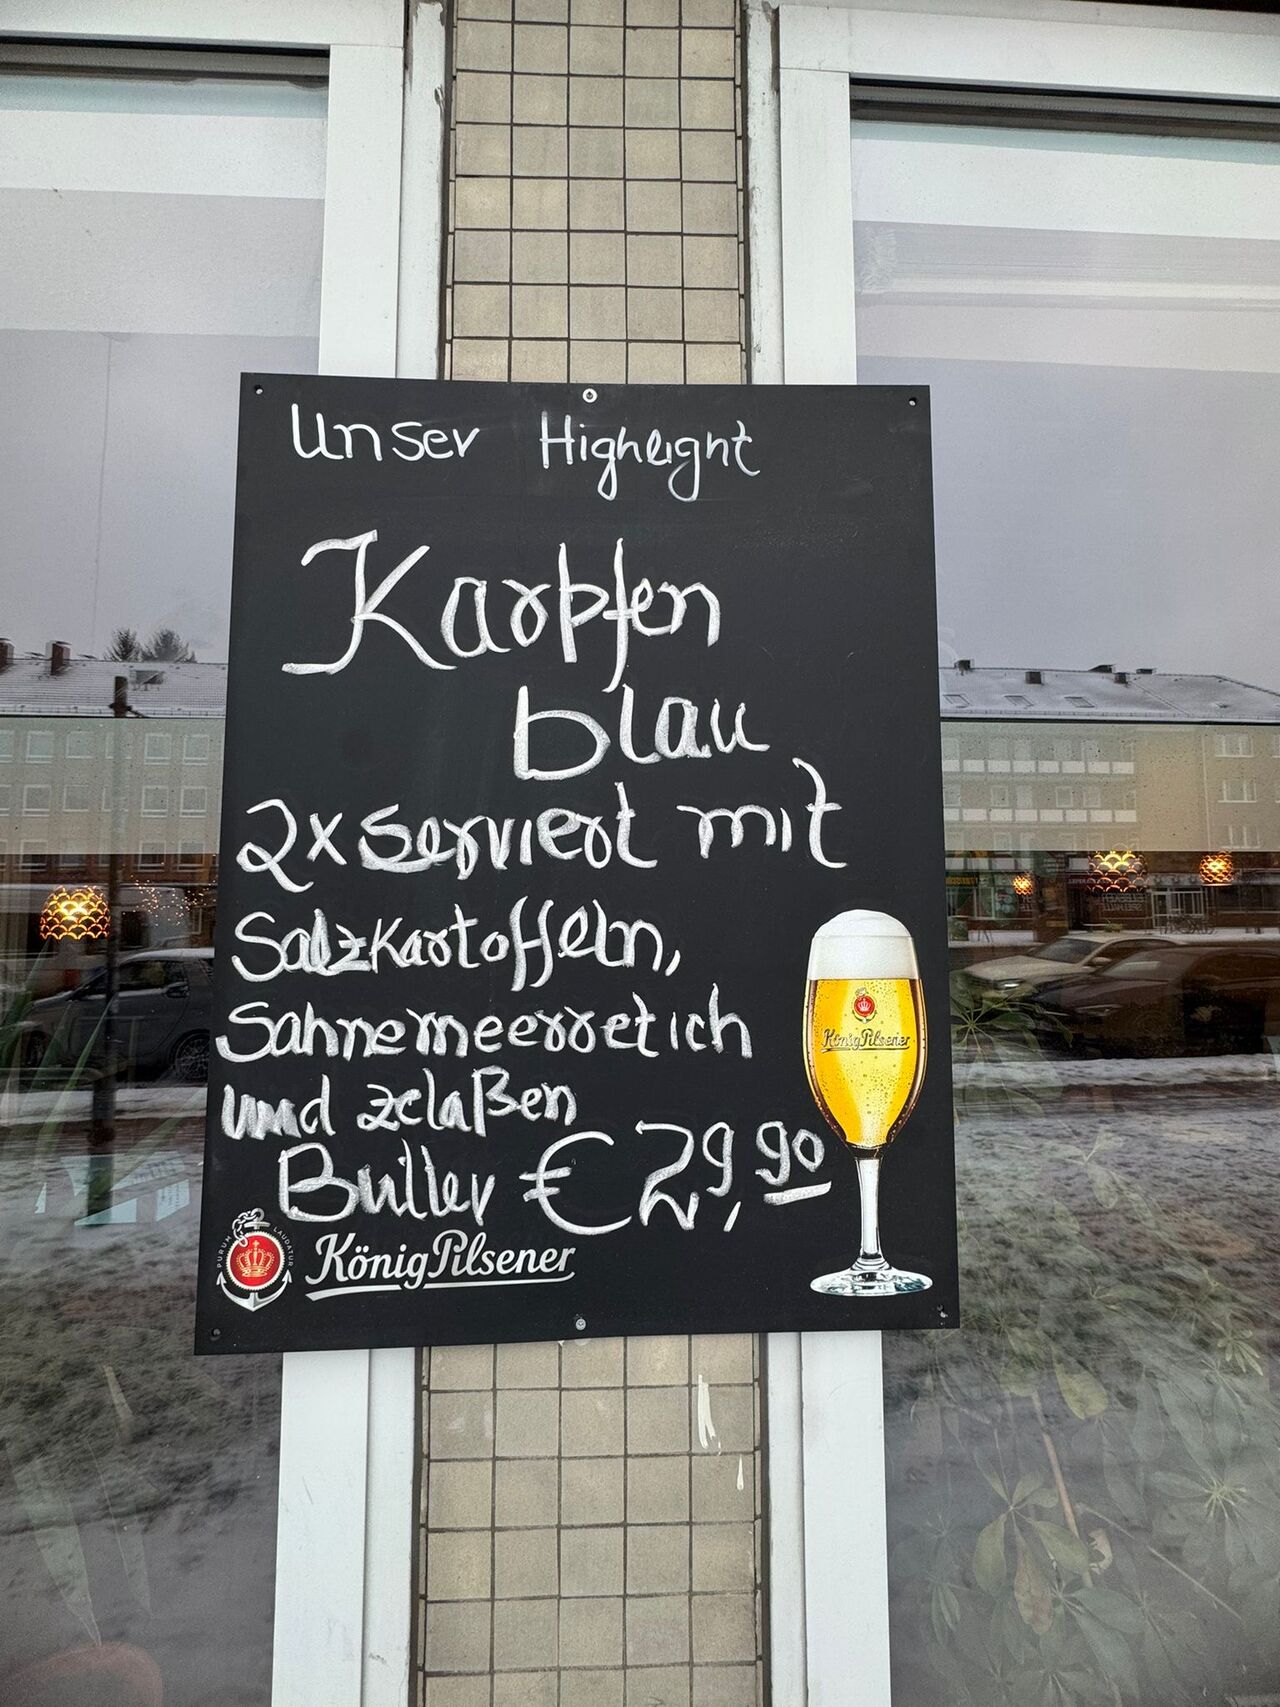 Unser Highlight
Karpfen
blau
2x serviert mit
Salzkartoffeln,
Sahnemeerrettich
und zelaßen
Butter € 29,90
PURUM LAUDATUR
König Pilsener
König Pilsener